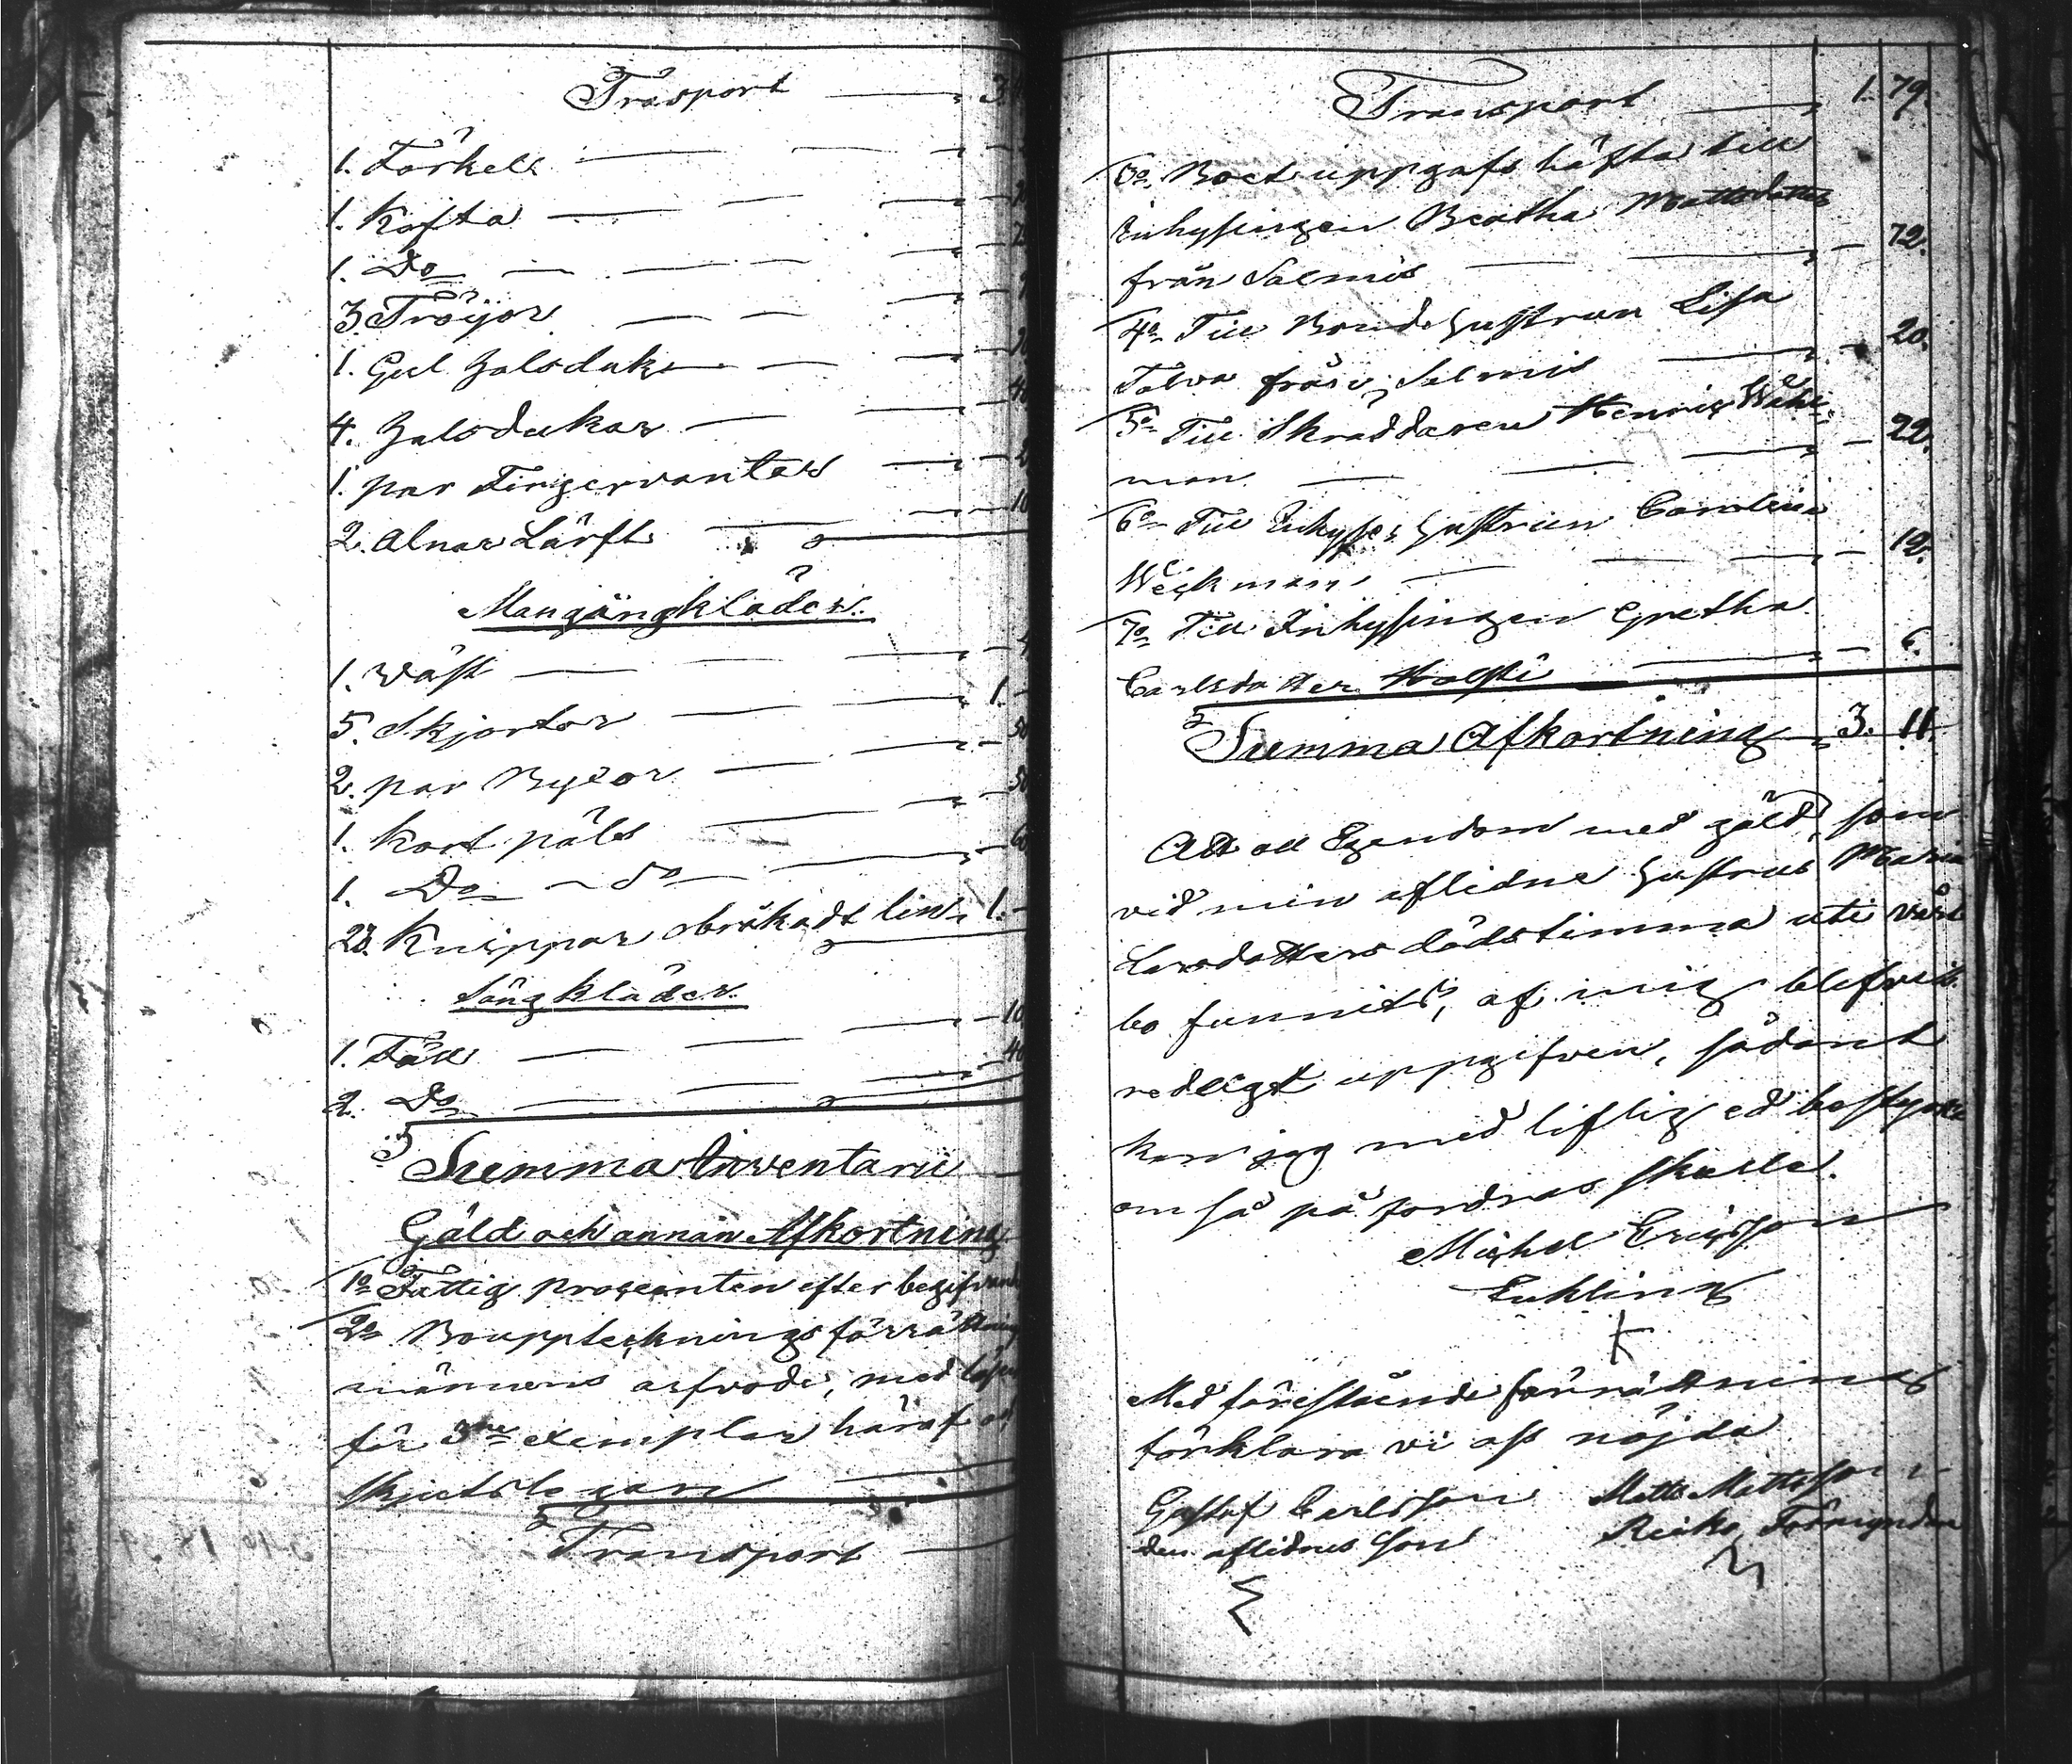 Trasport 3
1. Förkell
1. Kofta
1. Do
3. Tröijor
1. Gul Halsduk
4. Halsdukar
1. par Fingervantar
2. Alnar Lärft
Mangångkläder.
1. Wäst
5. Skjortor 1.
2. par Byxor
1. Kort päls
1. Do do
23. Knippor obråkadt lin 1.
Sängkläder.
1. Fäll 10
2. Do 40
Summa Inventarii
Gäld och annan Afkortning
1o Fattig procenten efter
2o Bouppteckningsförrättnings
männens arfvode, med
för 3ne exemplar häraf
skjutslegan
Transport
Transport 1. 79.
3o Boet uppgafs häfta till
Inhysingen Beatha Mattsdotter
från Salmis 72.
4o Till Bonde hustrun Lisa
Talva från Salmis 20.
5o Till Skräddaren Henric Weck-
man 22.
6o Till Inhyses hustrun Carolina
Weckman 12.
7o Till Inhysingen Gretha
Carlsdotter 6.
Summa Afkortning 3. 11.
Att all Egendom med gäld, som
vid min aflidne hustrus Maria
Larsdotters dödstimma uti vårt
bo funnits, af mig blifvit
redligt uppgifven, sådant
kan jag med liflig ed bestyrka
om så på fordras skulle.
Michel Ericsson
Euhling
Med förestående förrättning
förklara vi oss nöjda
Gustaf Carlsson Matts Mattsson
den aflidnes Son Förmyndare